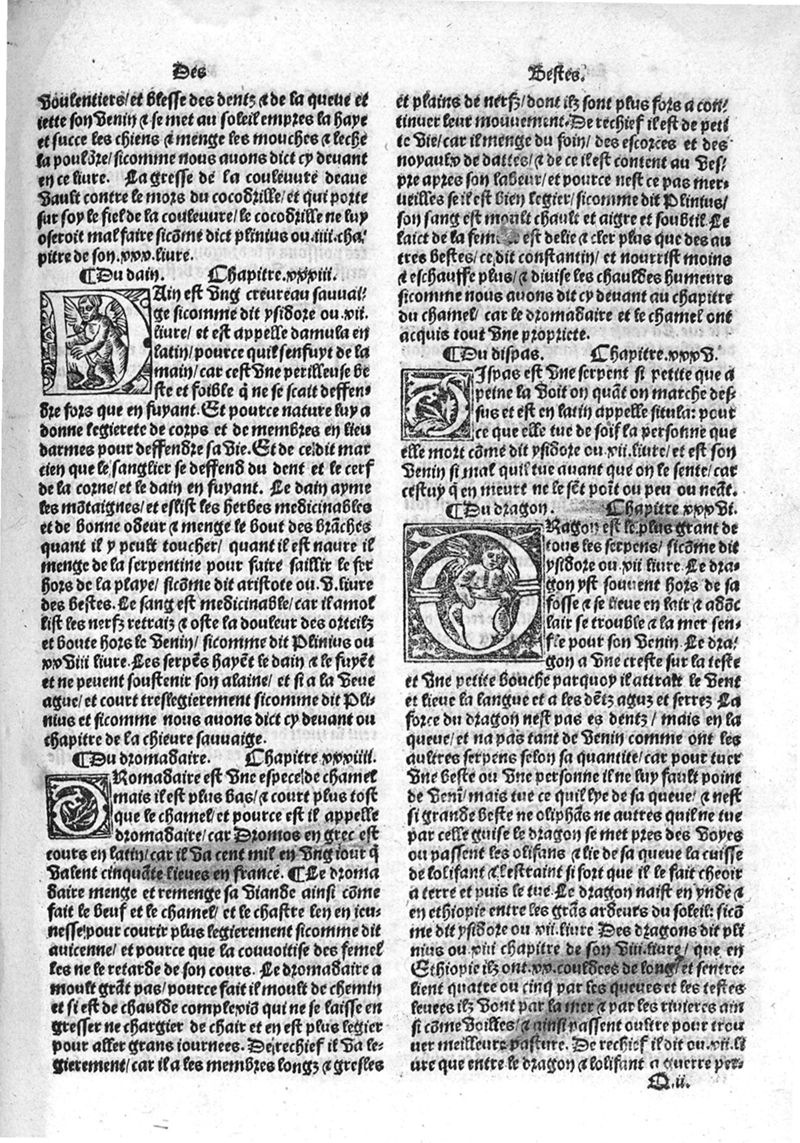 Des
Bestes.
voulentiers/ et blesse des dentz ⁊ de la queue et
iette son venin ⁊ se met au soleil empres la haye
et succe les chiens ⁊ menge les mouches ⁊ leche
la pouldre/ sicomme nous auons dict cy deuant
en ce liure. La gresse de la couleuure deaue
vault contre le mors du cocodrille/ et qui porte
sur soy le fiel de la couleuure/ le cocodrille ne luy
oseroit mal faire sicõme dict plinius ou .iiii. cha/
pitre de son .xxx. liure.
¶Du dain. Chapitre .xxxiii.
DAin est vng cheureau sauuai/
ge sicomme dit ysidore ou .xii.
liure/ et est appelle damula en
latin/ pource quil senfuyt de la
main/ car cest vne perilleuse be
ste et foible q̃ ne se scait deffen/
dre fors que en fuyant. Et pource nature luy a
donne legierete de corps et de membres en lieu
darmes pour deffendre sa vie. Et de ce dit mar
cien que le sanglier se deffend du dent et le cerf
de la corne/ et le dain en fuyant. Le dain ayme
les mõtaignes/ et eslist les herbes medicinables
et de bonne odeur ⁊ menge le bout des brãches
quant il y peult toucher/ quant il est naure il
menge de la serpentine pour faire saillir le fer
hors de la playe/ sicõme dit aristote ou .v. liure
des bestes. Le sang est medicinable/ car il amol
list les nerfz retraiz ⁊ oste la douleur des orteilz
et boute hors le venin/ sicomme dit Plinius ou
xxviii liure. Les serpẽs hayẽt le dain ⁊ le fuyẽt
et ne peuent soustenir son alaine/ et si a la veue
ague/ et court treslegierement sicomme dit Pli/
nius et sicomme nous auons dict cy deuant ou
chapitre de la chieure sauuaige.
¶Du dromadaire. Chapitre xxxiiii.
DRomadaire est vne espece de chamel
mais il est plus bas/ ⁊ court plus tost
que le chamel/ et pource est il appelle
dromadaire/ car Dromos en grec est
cours en latin/ car il va cent mil en vng iour q̃
valent cinquãte lieues en france. ¶Le droma
daire menge et remenge sa viande ainsi cõme
fait le beuf et le chamel/ et le chastre len en ieu/
nesse/ pour courir plus legierement sicomme dit
auicenne/ et pource que la couuoitise des femel
les ne le retarde de son cours. Le dromadaire a
moult grãt pas/ pource fait il moult de chemin
et si est de chaulde complexiõ qui ne se laisse en
gresser ne chargier de chair et en est plus legier
pour aller grans iournees. De rechief il va le/
gierement/ car il a les membres longz ⁊ gresles
et plains de nerfz/ dont ilz sont plus fors a con/
tinuer leur mouuement. De rechief il est de peti
te vie/ car il menge du foin/ des escorces et des
noyaulx de dattes/ ⁊ de ce il est content au ves/
pre apres son labeur/ et pource nest ce pas mer/
ueilles se il est bien legier/ sicomme dit Plinius/
son sang est moult chault et aigre et soubtil. Le
laict de la est delie ⁊ cler plus que des au
tres bestes/ ce dit constantin/ et nourrist moins
⁊ eschauffe plus/ ⁊ diuise les chauldes humeurs
sicomme nous auons dit cy deuant au chapitre
du chamel/ car le dromadaire et le chamel ont
acquis tout vne propriete.
¶Du dispas. Chapitre .xxxv.
DIspas est vne serpent si petite que a
peine la voit on quãt on marche des/
sus et est en latin appelle situla: pour
ce que elle tue de soif la personne que
elle mort cõme dit ysidore ou .xii. liure/ et est son
venin si mal quil tue auant que on le sente/ car
cestuy q̃ en meurt ne le sẽt poĩt ou peu ou neãt.
¶Du dragon. Chapitre .xxxvi.
DRagon est le plus grant de
tous les serpens/ sicõme dit
ysidore ou .xii liure. Le dra/
gon yst souuent hors de sa
fosse ⁊ se lieue en lair ⁊ adõc
lair se trouble ⁊ la mer sen/
fle pour son venin. Le dra/
gon a vne creste sur la teste
et vne petite bouche parquoy il attrait le vent
et lieue la langue et a les dẽtz aguz et serrez. La
force du dragon nest pas es dentz/ mais en la
queue/ et na pas tant de venin comme ont les
aultres serpens selon sa quantite/ car pour tuer
vne beste ou vne personne il ne luy fault point
de venĩ/ mais tue ce quil lye de sa queue/ ⁊ nest
si grande beste ne oliphãs ne autres quil ne tue
par celle guise le dragon se met pres des voyes
ou passent les olifans ⁊ lie de sa queue la cuisse
de lolifant ⁊ lestraint si fort que il le fait cheoir
a terre et puis le tue. Le dragon naist en ynde ⁊
en ethiopie entre les grãs ardeurs du soleil: sicõ
me dit ysidore ou .xii. liure Des dragons dit pli
nius ou .xiii chapitre de son .viii. liure/ que en
Ethiopie ilz ont .xx. couldees de long/ et sentre/
lient quatre ou cinq par les queues et les testes
leuees ilz vont par la mer ⁊ par les riuieres ain
si cõme voilles/ ⁊ ainsi passent oultre pour trou
uer meilleure pasture. De rechief il dit ou .xii. li
ure que entre le dragon ⁊ lolifant a guerre per/
Q.ii.